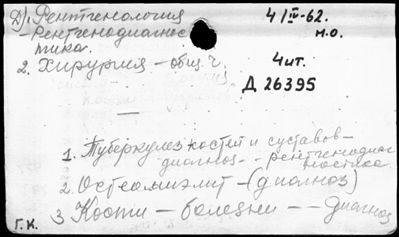 Д). Рентгенология
- Рентгенодиагнос
тика.
2. Хирургия - общ. ч.
4/IV-62.
м.о.
4 чт.
Д 26395
1. Туберкулез костей и суставов -
диагноз - - рентгенодиаг
ностика
2. Остеомиэлит - (диагноз)
3 Кости - болезни - - диагноз
Г.К.